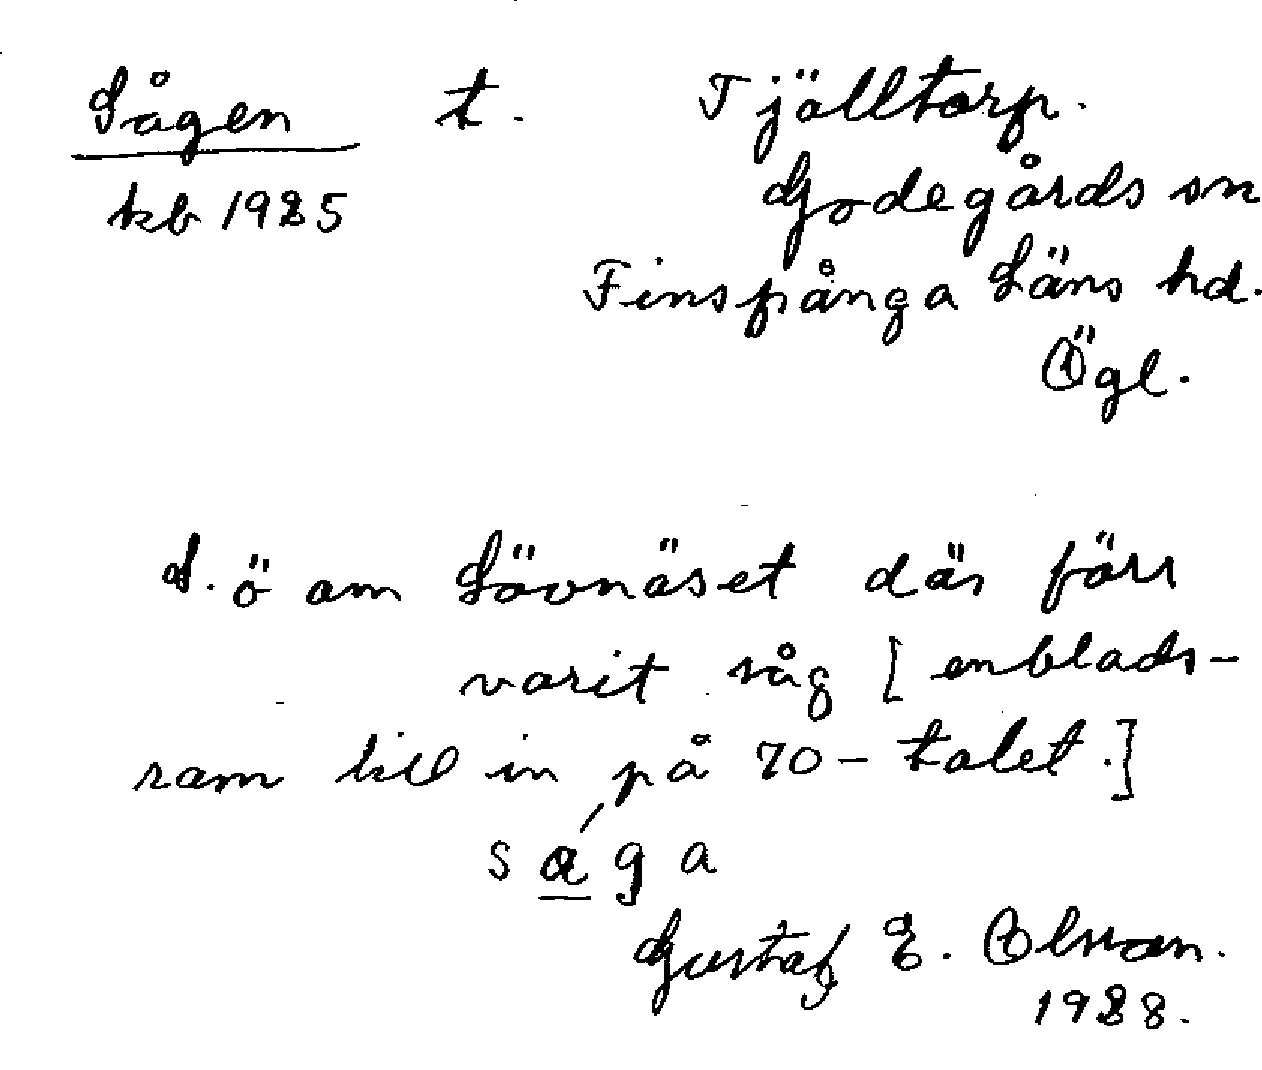 Sågen t. Tjälltorp.
kb 1925 Godegårds sn
Finspånga Läns hd.
Ögl.
S. ö om Lövnäset där förr
varit såg [enblads-
ram till in på 70-talet.]
sága
Gustaf E. Olsson.
1928.